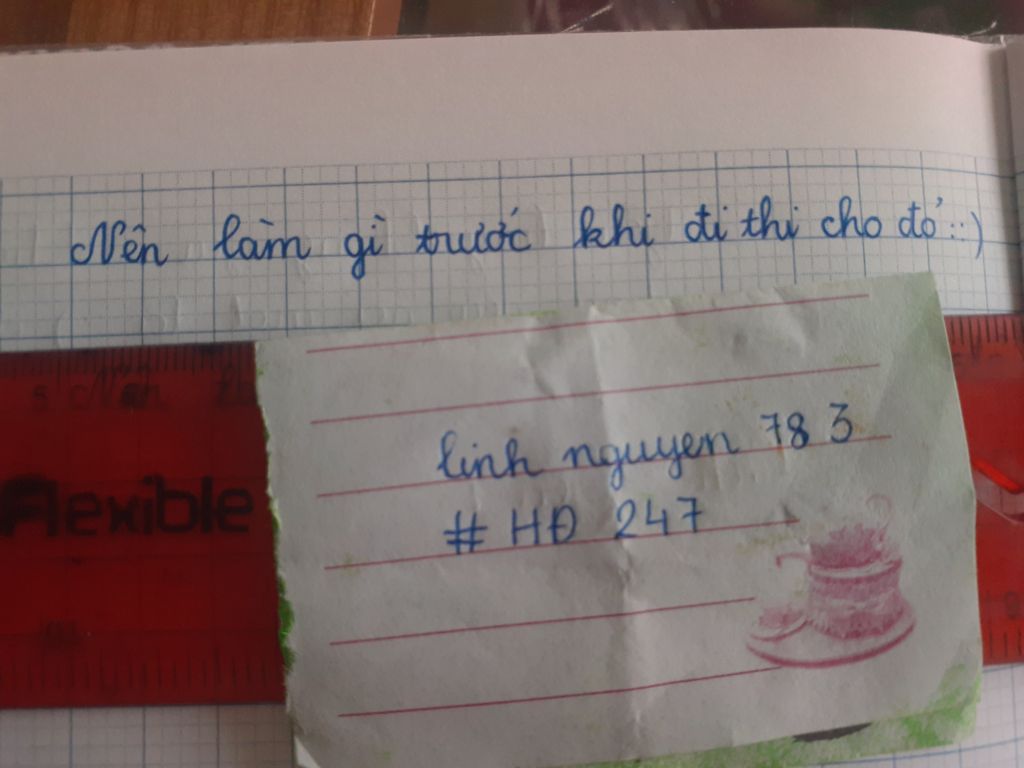 Nên làm gì trước khi đi thi cho đỏ ::)
Flexible
linh nguyen 783
# HĐ 247